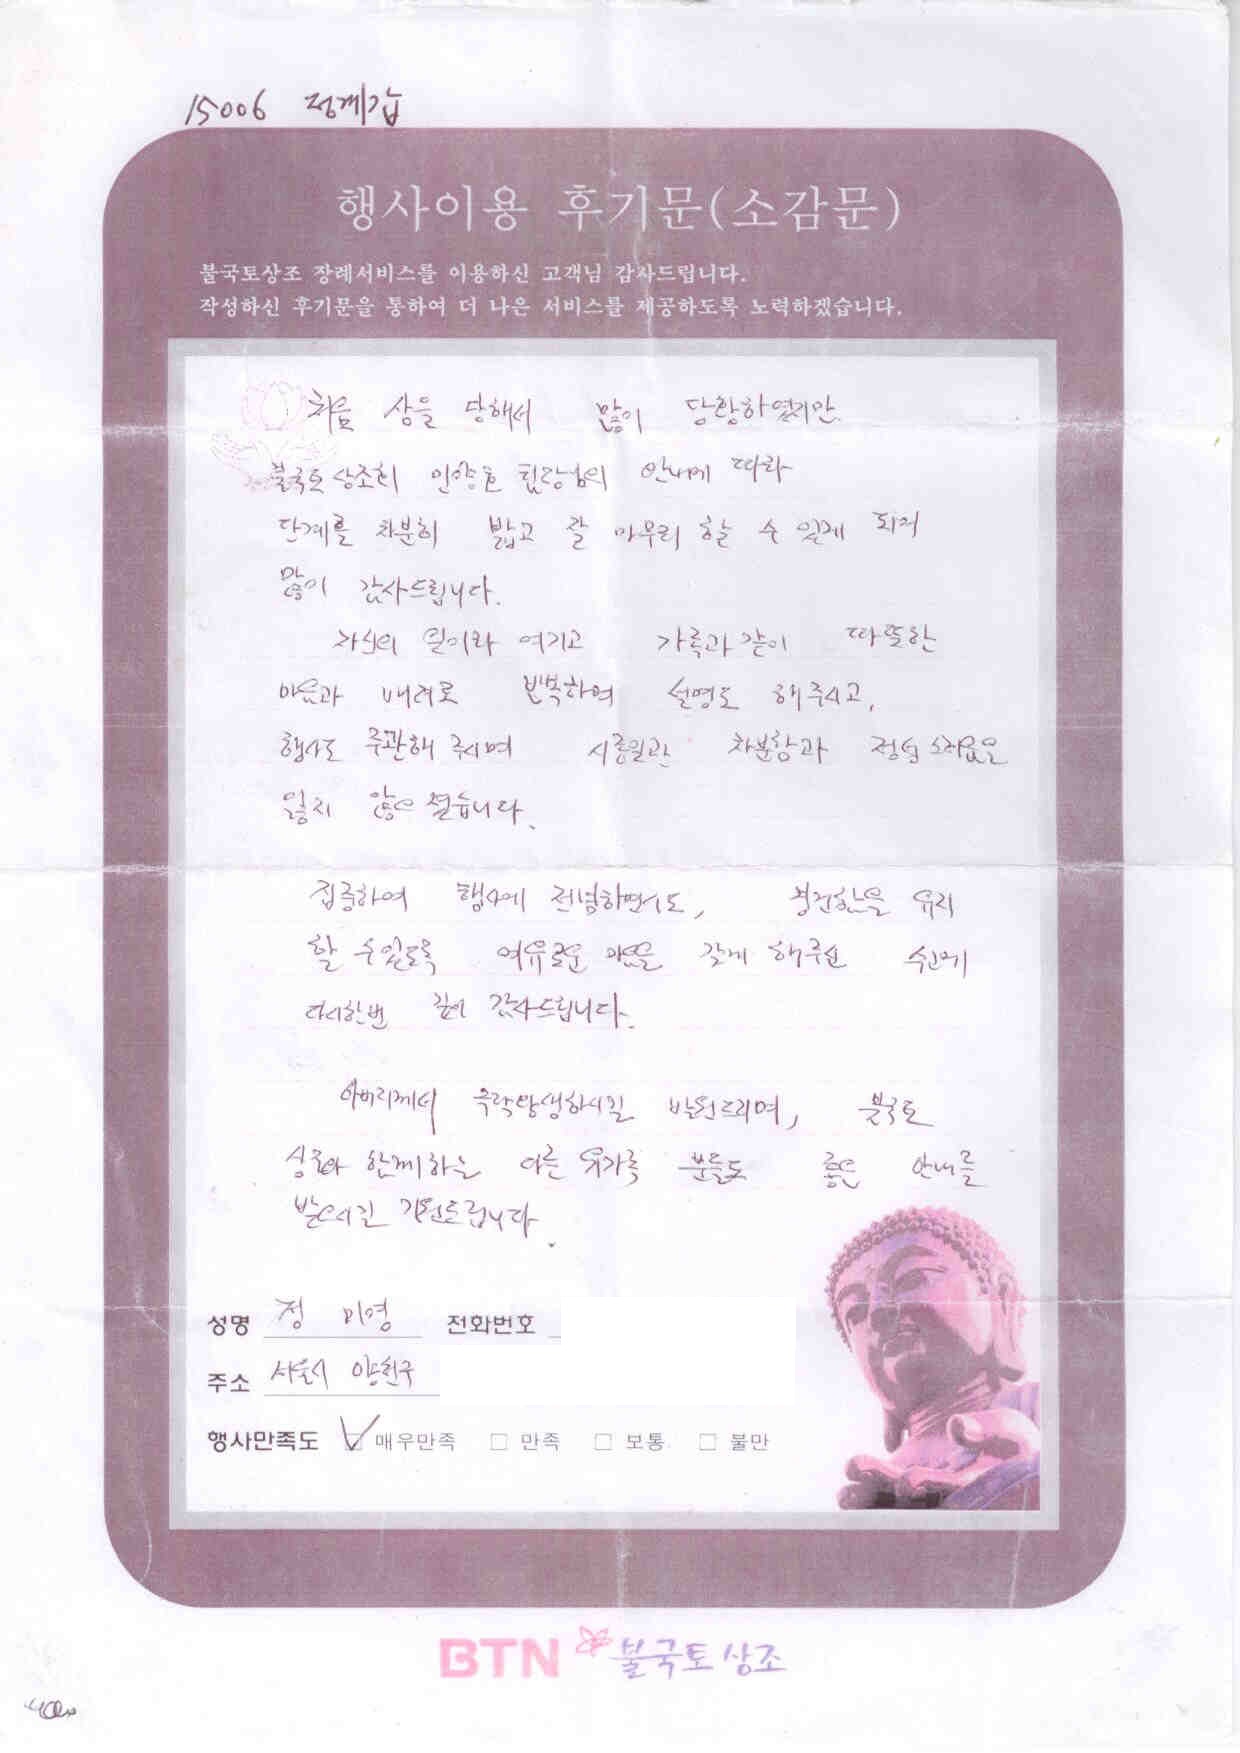 15006 정계갑
행사이용 후기문(소감문)
불국토상조 장례서비스를 이용하신 고객님 감사드립니다.
작성하신 후기문을 통하여 더 나은 서비스를 제공하도록 노력하겠습니다.
처음 상을 당해서 많이 당황하였지만
불국토 상조회 팀장님의 안내에 따라
단계를 차분히 밟고 잘 마무리 할 수 있게 되어
많이 감사드립니다.
자신의 일이라 여기고 가족과 같이 따뜻한
마음과 배려로 반복하여 설명도 해주시고,
행사도 주관해 주시며 시종일관 차분함과
잃지 않으셨습니다.
집중하여 행사에 전념하면서도, 경건함을 유지
할 수 있도록 여유로운 마음을 갖게 해주신
다시한번 깊이 감사드립니다.
아버님께서 극락왕생하시길 발원드리며, 불국토
상조와 함께하는 다른 유가족 분들도 좋은 안내를
받으시길 기원드립니다.
성명 정 미영 전화번호
주소 서울시 양천구
행사만족도 ☑ 매우만족 □ 만족 □ 보통 □ 불만
BTN 불국토상조